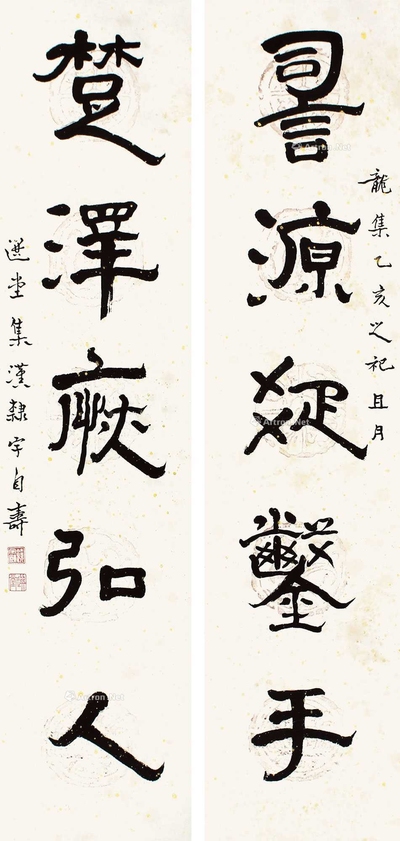 䛐源疑鑿手
龍集乙亥之祀且月
楚澤厥弘人
選堂集漢隸字自壽